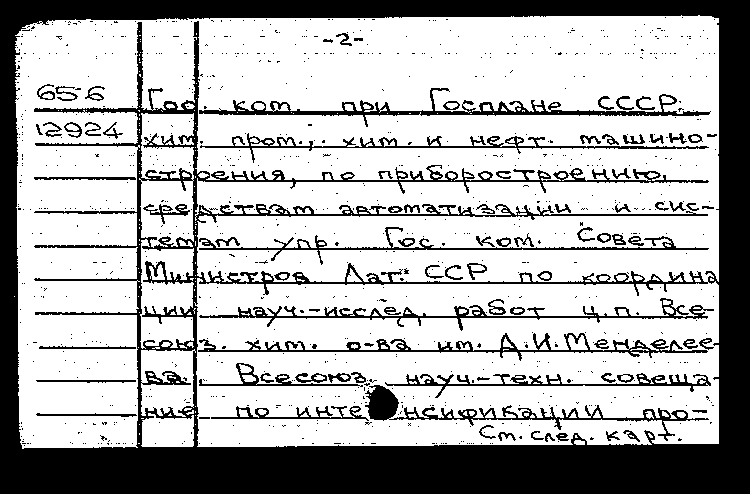 -2-
656 Гос. ком. при Госплане СССР:
12924 хим. пром.,. хим. и нефт. машино-
строения, по приборостроению,
средствам автоматизации и сис-
темам упр. Гос. ком. Совета
Министров Лат. ССР по координа
ции науч.-исслед. работ Ц.П. Все-
союз. хим. о-ва им. Д.И.Менделее-
ва. Всесоюз. науч.-техн. совеща-
ние по интенсификации про-
См. след. карт.